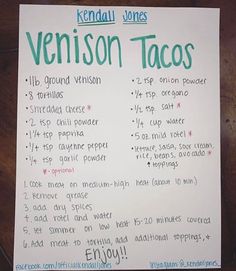 Kendall Jones
Venison Tacos
• 1lb ground venison
• 8 tortillas
• Shredded cheese *
• 2 tsp chili powder
• 1 1/4 tsp paprika
• 1/4 tsp cayenne pepper
• 1/4 tsp garlic powder
* - optional
• 2 tsp onion powder
• 1/4 tsp oregano
• 1/2 tsp salt *
• 1/4 cup water
• 5 oz mild rotel *
• lettuce, salsa, sour cream,
rice, beans, avocado *
↑ toppings
1. Cook meat on medium-high heat (about 10 min)
2. Remove grease
3. add dry spices
4. add rotel and water
5. let simmer on low heat 15-20 minutes covered
6. Add meat to tortilla, add additional toppings, &
Enjoy!!
facebook.com/officialkendalljones